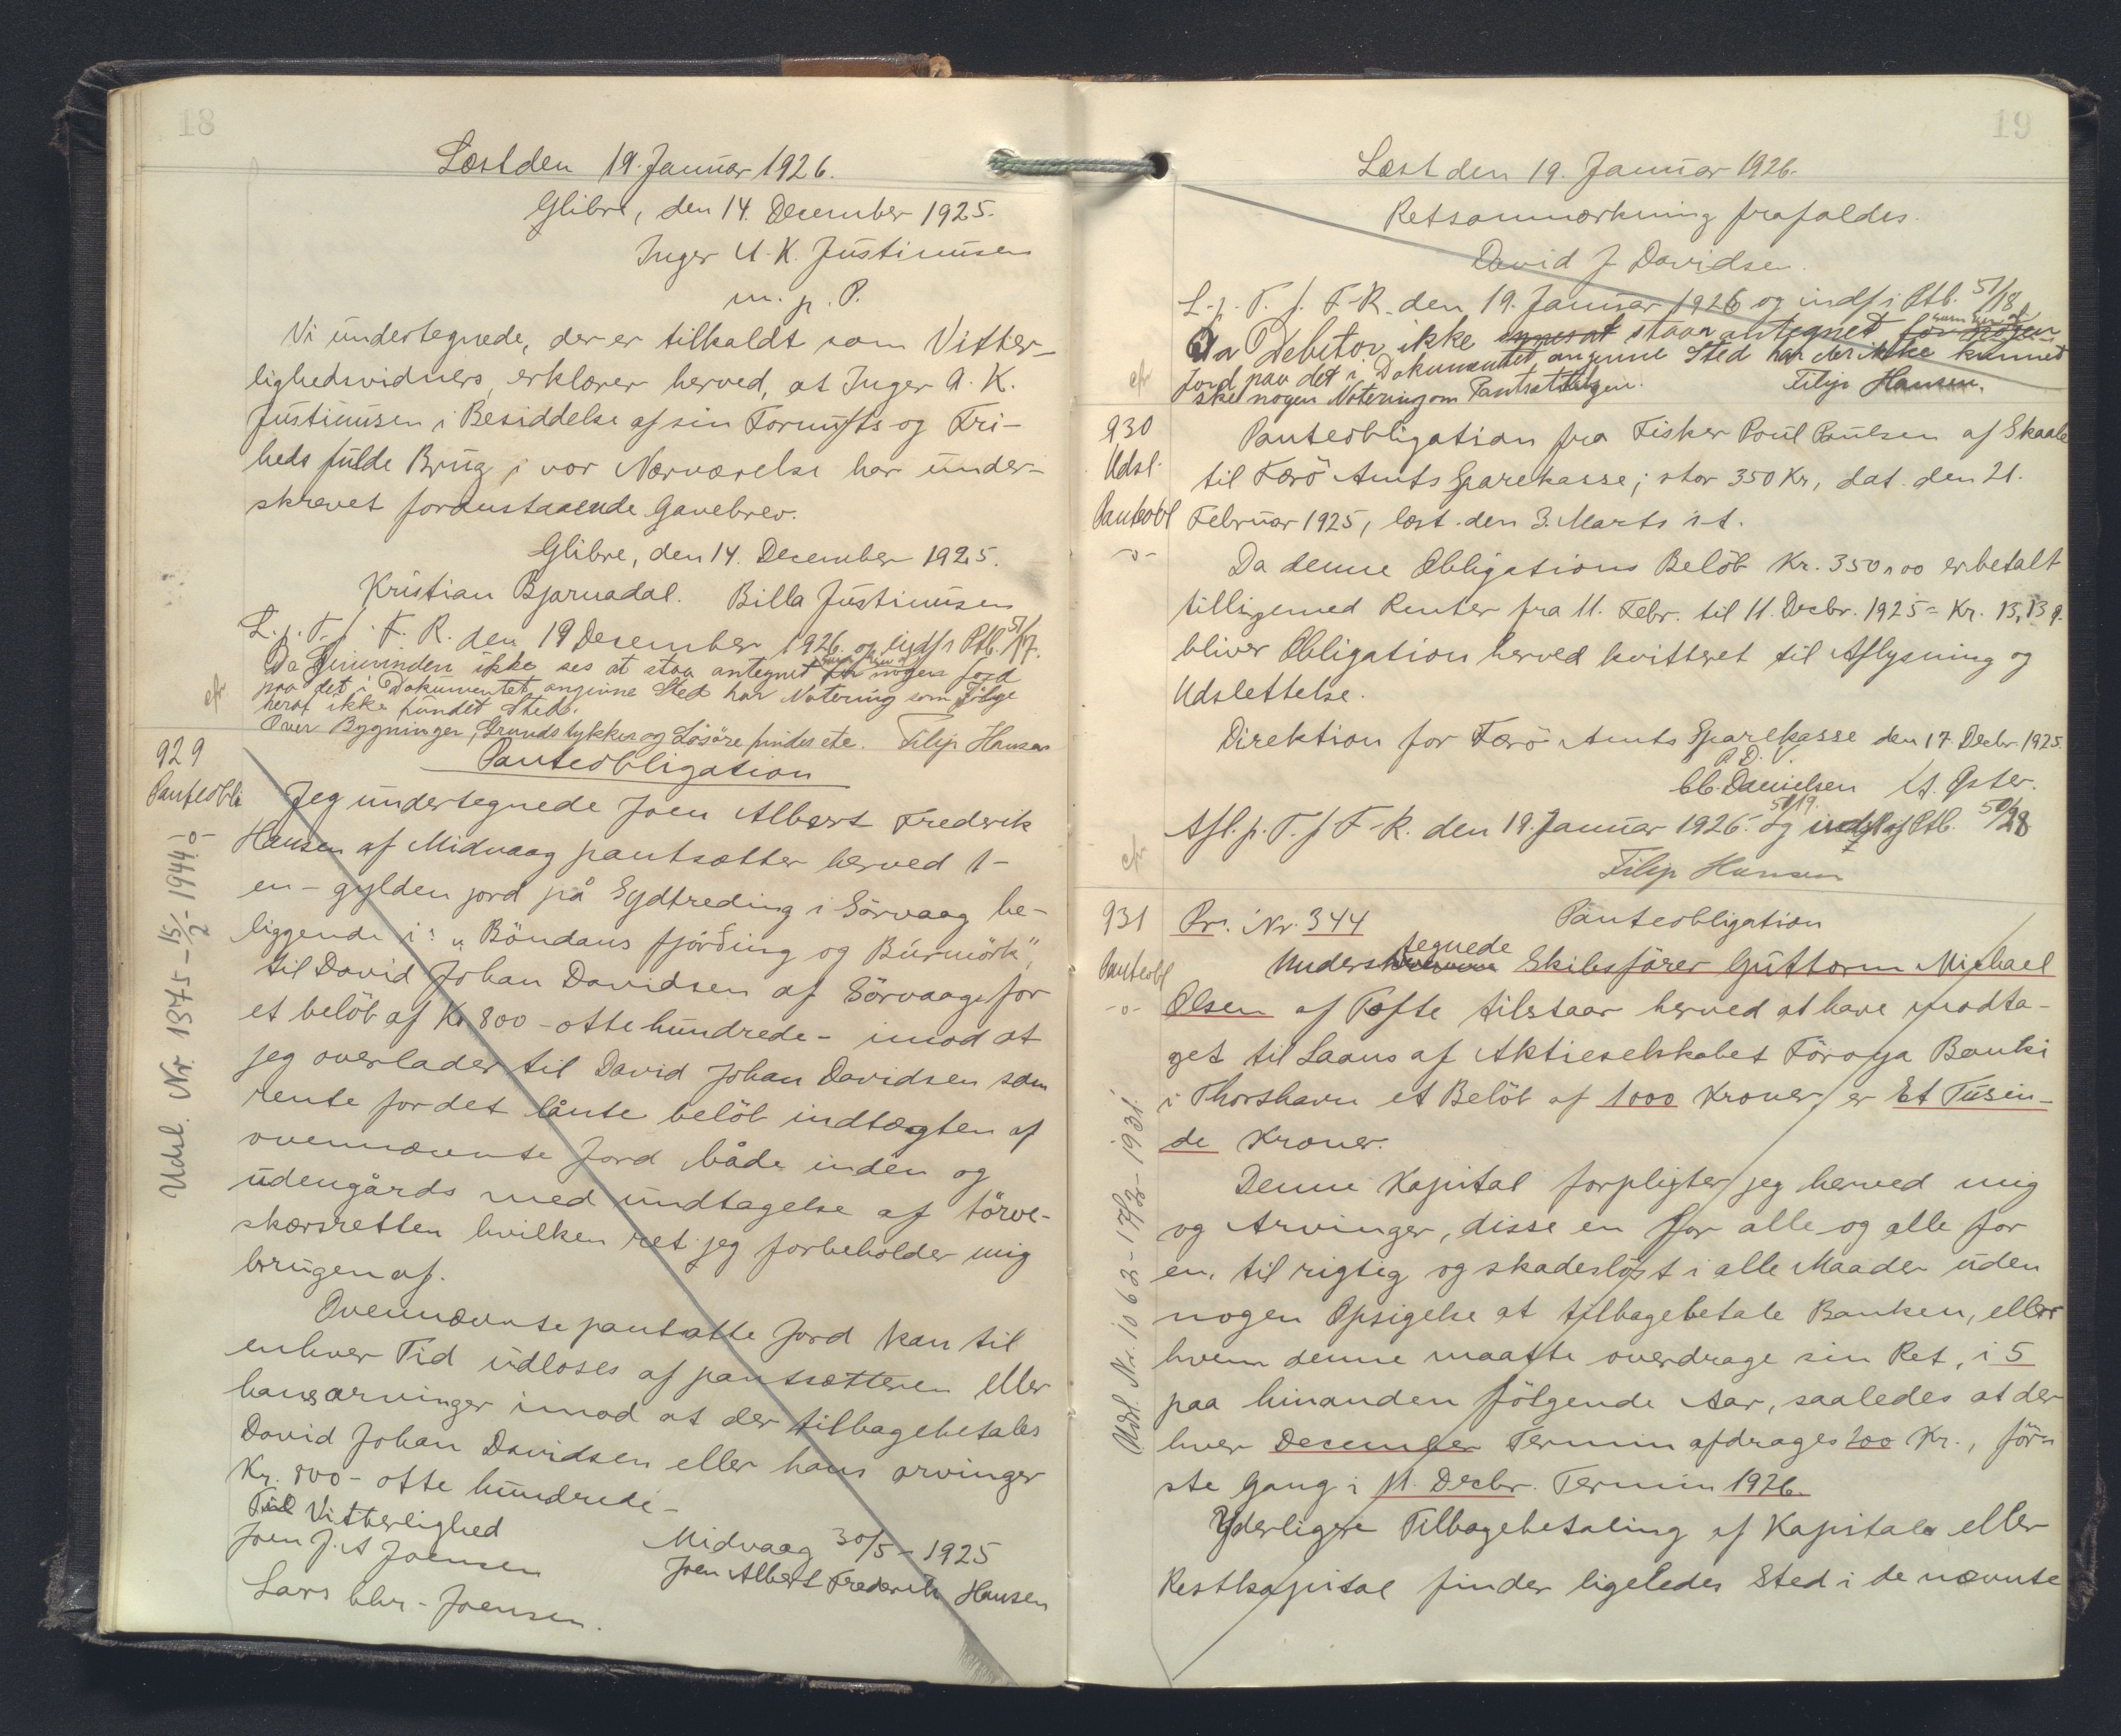 18
Læst den 19. Januar 1926.
Glibre, den 14. December 1925.
Inger A. K. Justinussen
m. p. P.
Vi undertegnede, der er tilkaldt som Vitter-
lighedsvidners, erklærer herved, at Inger A. K.
Justinussen i Besiddelse af sin Fornufts og Fri-
heds fulde Brug i vor Nærværelse har under-
skrevet foranstaaende Gavebrev.
Glibre, den 14. December 1925.
Kristian Bjarnadal. Billa Justinussen
L. p. T. f. F. R. den 19 Desember 1926. og indf i Ptb. 51/17.
Da Giverinden ikke ses at staa antegnet som Ejer af nogen Jord
paa det i Dokumentet angivne Sted har Notering som Følge
heraf ikke fundet Sted.
Over Bygninger, Grundstykker og Løsøre findes ete. Filip Hansen
cfr
929
Panteobli
-o-
Udsl. Nr. 1375 - 15/2 - 1944.
Panteobligation
Jeg undertegnede Joen Albert Frederik
Hansen af Midvaag pantsætter herved 1-
en - gylden jord på Sydtreding i Sörvaag be-
liggende i: "Böndans fjórðing og Búrmörk",
til David Johan Davidsen af Sörvaag for
et belöb af Kr 800 - otte hundrede - imod at
jeg overlader til David Johan Davidsen som
rente for det lånte belöb indtægten af
ovennævnte Jord både inden og
udengårds med undtagelse af törve-
skærsretten hvilken ret jeg forbeholder mig
brugen af.
Ovennævnte pantsatte Jord kan til
enhver Tid udlöses af pantsætteren eller
hans arvinger imod at der tilbagebetales
David Johan Davidsen eller hans arvinger
Kr. 800 - otte hundrede -
Til Vitterlighed
Joen J. A Joensen
Lars Chr. Joensen.
Midvaag 30/5 - 1925
Joen Albert Frederik Hansen
19
Læst den 19. Januar 1926.
Retsanmærkning frafaldes.
David J Davidsen.
L. p. T. f. F. R. den 19. Januar 1926 og indf i Ptb. 51/18
Da Debitor ikke staar antegnet som Ejer af
Jord paa det i Dokumentet angivne Sted har der ikke kunnet
ske nogen Notering om Pantsættelsen. Filip Hansen.
cfr
930
Udsl.
Panteobl
-o-
Panteobligation fra Fisker Poul Poulsen af Skaale
til Færö Amts Sparekasse; stor 350 Kr, dat. den 21.
Februar 1925, læst den 3. Marts s.A.
Da denne Obligations Belöb Kr. 350,00 er betalt
tilligemed Renter fra 11. Febr. til 11. Decbr. 1925 = Kr. 13,13 q.
bliver Obligation herved kvitteret til Aflysning og
Udslettelse.
Direktion for Færö Amts Sparekasse den 17 Decbr. 1925.
A D.
C.C. Danielsen A. Øster.
Afl. p. T. f F-R. den 19. Januar 1926. og udsl af Ptb. 50/28
51/19.
Filip Hansen
cfr
931
Panteobl
-o-
Udsl. Nr. 1063 - 17/2 - 1931.
Pr. Nr. 344 Panteobligation
Undertegnede Skibsförer Guttorm Michael
Olsen af Tofte tilstaar herved at have modta-
get til Laans af Aktieselskabet Föroya Banki
i Thorshavn et Belöb af 1000 Kroner, er Et Tusin-
de Kroner.
Denne Kapital forpligter jeg herved mig
og Arvinger, disse en for alle og alle for
en, til rigtig og skadeslöst i alle Maader uden
nogen Opsigelse at tilbagebetale Banken, eller
hvem denne maatte overdrage sin Ret, i 5
paa hinanden fölgende Aar, saaledes at der
hver December Termin afdrages 200 Kr., för-
ste Gang i 11. Decbr. Termin 1926.
Yderligere Tilbagebetaling af Kapitale eller
Restkapital finder ligeledes Sted i de nævnte